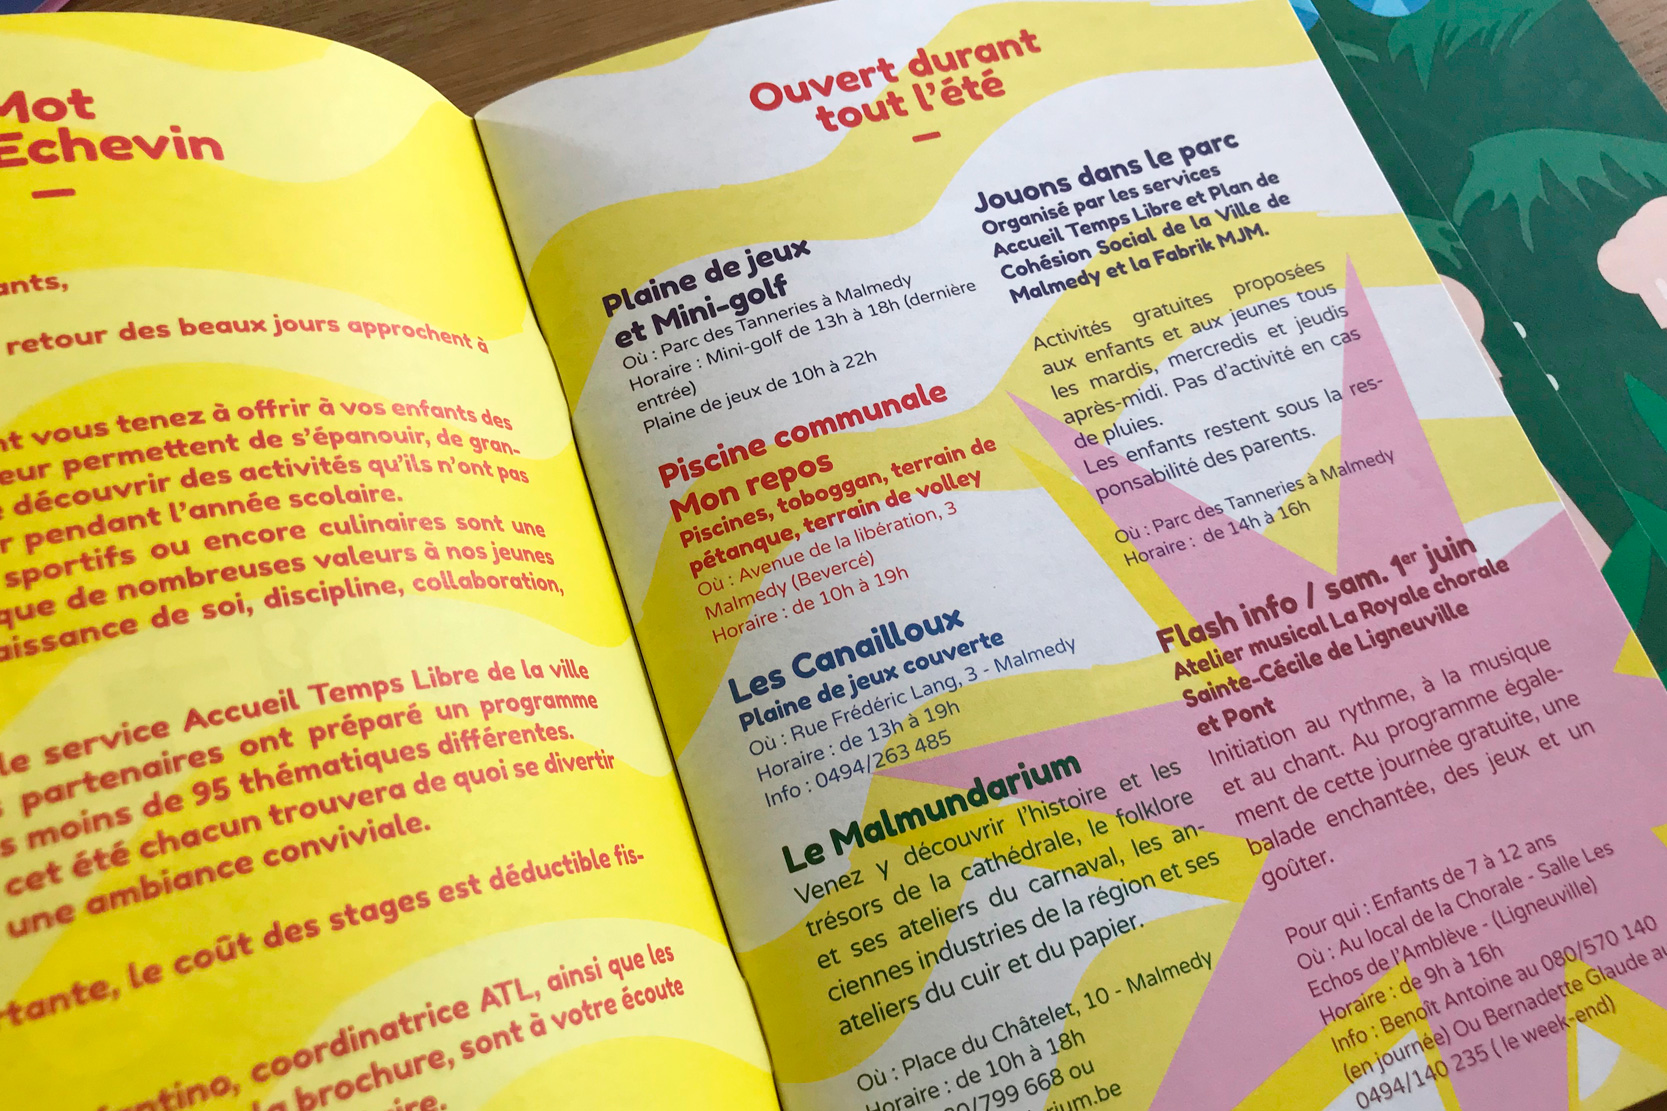 Mot
Echevin
retour des beaux jours approchent à
vous tenez à offrir à vos enfants des
permettent de s'épanouir, de gran-
découvrir des activités qu'ils n'ont pas
pendant l'année scolaire.
sportifs ou encore culinaires sont une
que de nombreuses valeurs à nos jeunes
de soi, discipline, collaboration,
le service Accueil Temps Libre de la ville
partenaires ont préparé un programme
moins de 95 thématiques différentes.
cet été chacun trouvera de quoi se divertir
une ambiance conviviale.
le coût des stages est déductible fis-
coordinatrice ATL, ainsi que les
brochure, sont à votre écoute
Ouvert durant
tout l'été
Plaine de jeux
et Mini-golf
Où : Parc des Tanneries à Malmedy
Horaire : Mini-golf de 13h à 18h (dernière
entrée)
Plaine de jeux de 10h à 22h
Piscine communale
Mon repos
Piscines, toboggan, terrain de
pétanque, terrain de volley
Où : Avenue de la libération, 3
Malmedy (Bevercé)
Horaire : de 10h à 19h
Les Canailloux
Plaine de jeux couverte
Où : Rue Frédéric Lang, 3 - Malmedy
Horaire : de 13h à 19h
Info : 0494/263 485
Le Malmundarium
Venez y découvrir l'histoire et les
trésors de la cathédrale, le folklore
et ses ateliers du carnaval, les an-
ciennes industries de la région et ses
ateliers du cuir et du papier.
Où : Place du Châtelet, 10 - Malmedy
Horaire : de 10h à 18h
/799 668 ou
Jouons dans le parc
Organisé par les services
Accueil Temps Libre et Plan de
Cohésion Social de la Ville de
Malmedy et la Fabrik MJM.
Activités gratuites proposées
aux enfants et aux jeunes tous
les mardis, mercredis et jeudis
après-midi. Pas d'activité en cas
de pluies.
Les enfants restent sous la res-
ponsabilité des parents.
Où : Parc des Tanneries à Malmedy
Horaire : de 14h à 16h
Flash info / sam. 1er juin
Atelier musical La Royale chorale
Sainte-Cécile de Ligneuville
et Pont
Initiation au rythme, à la musique
et au chant. Au programme égale-
ment de cette journée gratuite, une
balade enchantée, des jeux et un
goûter.
Pour qui : Enfants de 7 à 12 ans
Où : Au local de la Chorale - Salle Les
Echos de l'Amblève - (Ligneuville)
Horaire : de 9h à 16h
Info : Benoît Antoine au 080/570 140
(en journée) Ou Bernadette Glaude au
0494/140 235 ( le week-end)